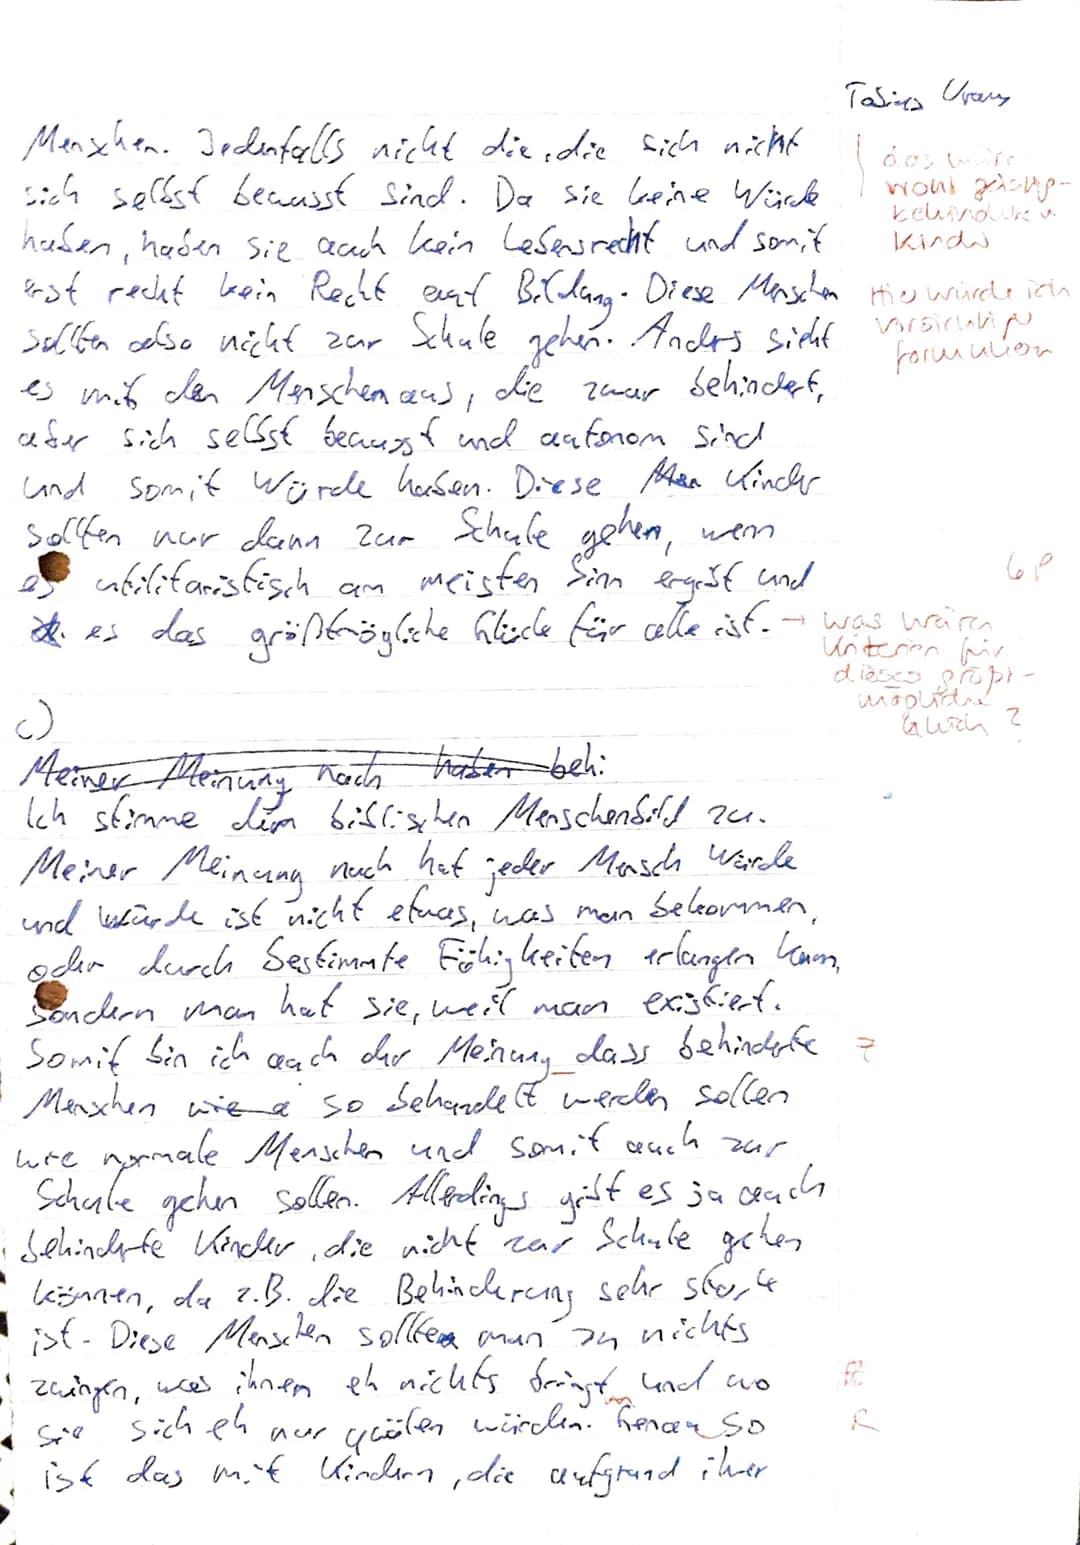 Tobias
Menschen. Jedenfalls nicht die, die sich nicht
sich selbst bewusst sind. Da sie keine Würde
haben, haben sie auch kein Lebensrecht und somit
erst recht kein Recht auf Bildung. Diese Menschen
sollten also nicht zur Schule gehen. Anders sieht
es mit den Menschen aus, die zwar behindert,
aber sich selbst bewusst und autonom sind
und somit Würde haben. Diese Men Kinder
sollten nur dann zur Schule gehen, wenn
es utilitaristisch am meisten Sinn ergibt und
es das größtmögliche Glück für alle ist.
das wäre
wohl geistig-
behinderte
Kinder
Hier würde ich
vorsichtiger
formulieren
6P
→ was wären
Kriterien für
dieses größt-
mögliche
Glück?
c)
Meiner Meinung nach haben beh:
Ich stimme dem biblischen Menschenbild zu.
Meiner Meinung nach hat jeder Mensch Würde
und Würde ist nicht etwas, was man bekommen,
oder durch bestimmte Fähigkeiten erlangen kann,
sondern man hat sie, weil man existiert.
Somit bin ich auch der Meinung dass behinderte
Menschen wie a so behandelt werden sollen
wie normale Menschen und somit auch zur
Schule gehen sollen. Allerdings gibt es ja auch
behinderte Kinder, die nicht zur Schule gehen
können, da z.B. die Behinderung sehr stark
ist. Diese Menschen sollte man zu nichts
zwingen, was ihnen eh nichts bringt und wo
sie sich eh nur quälen würden. Genau so R
ist das mit Kindern, die aufgrund ihrer